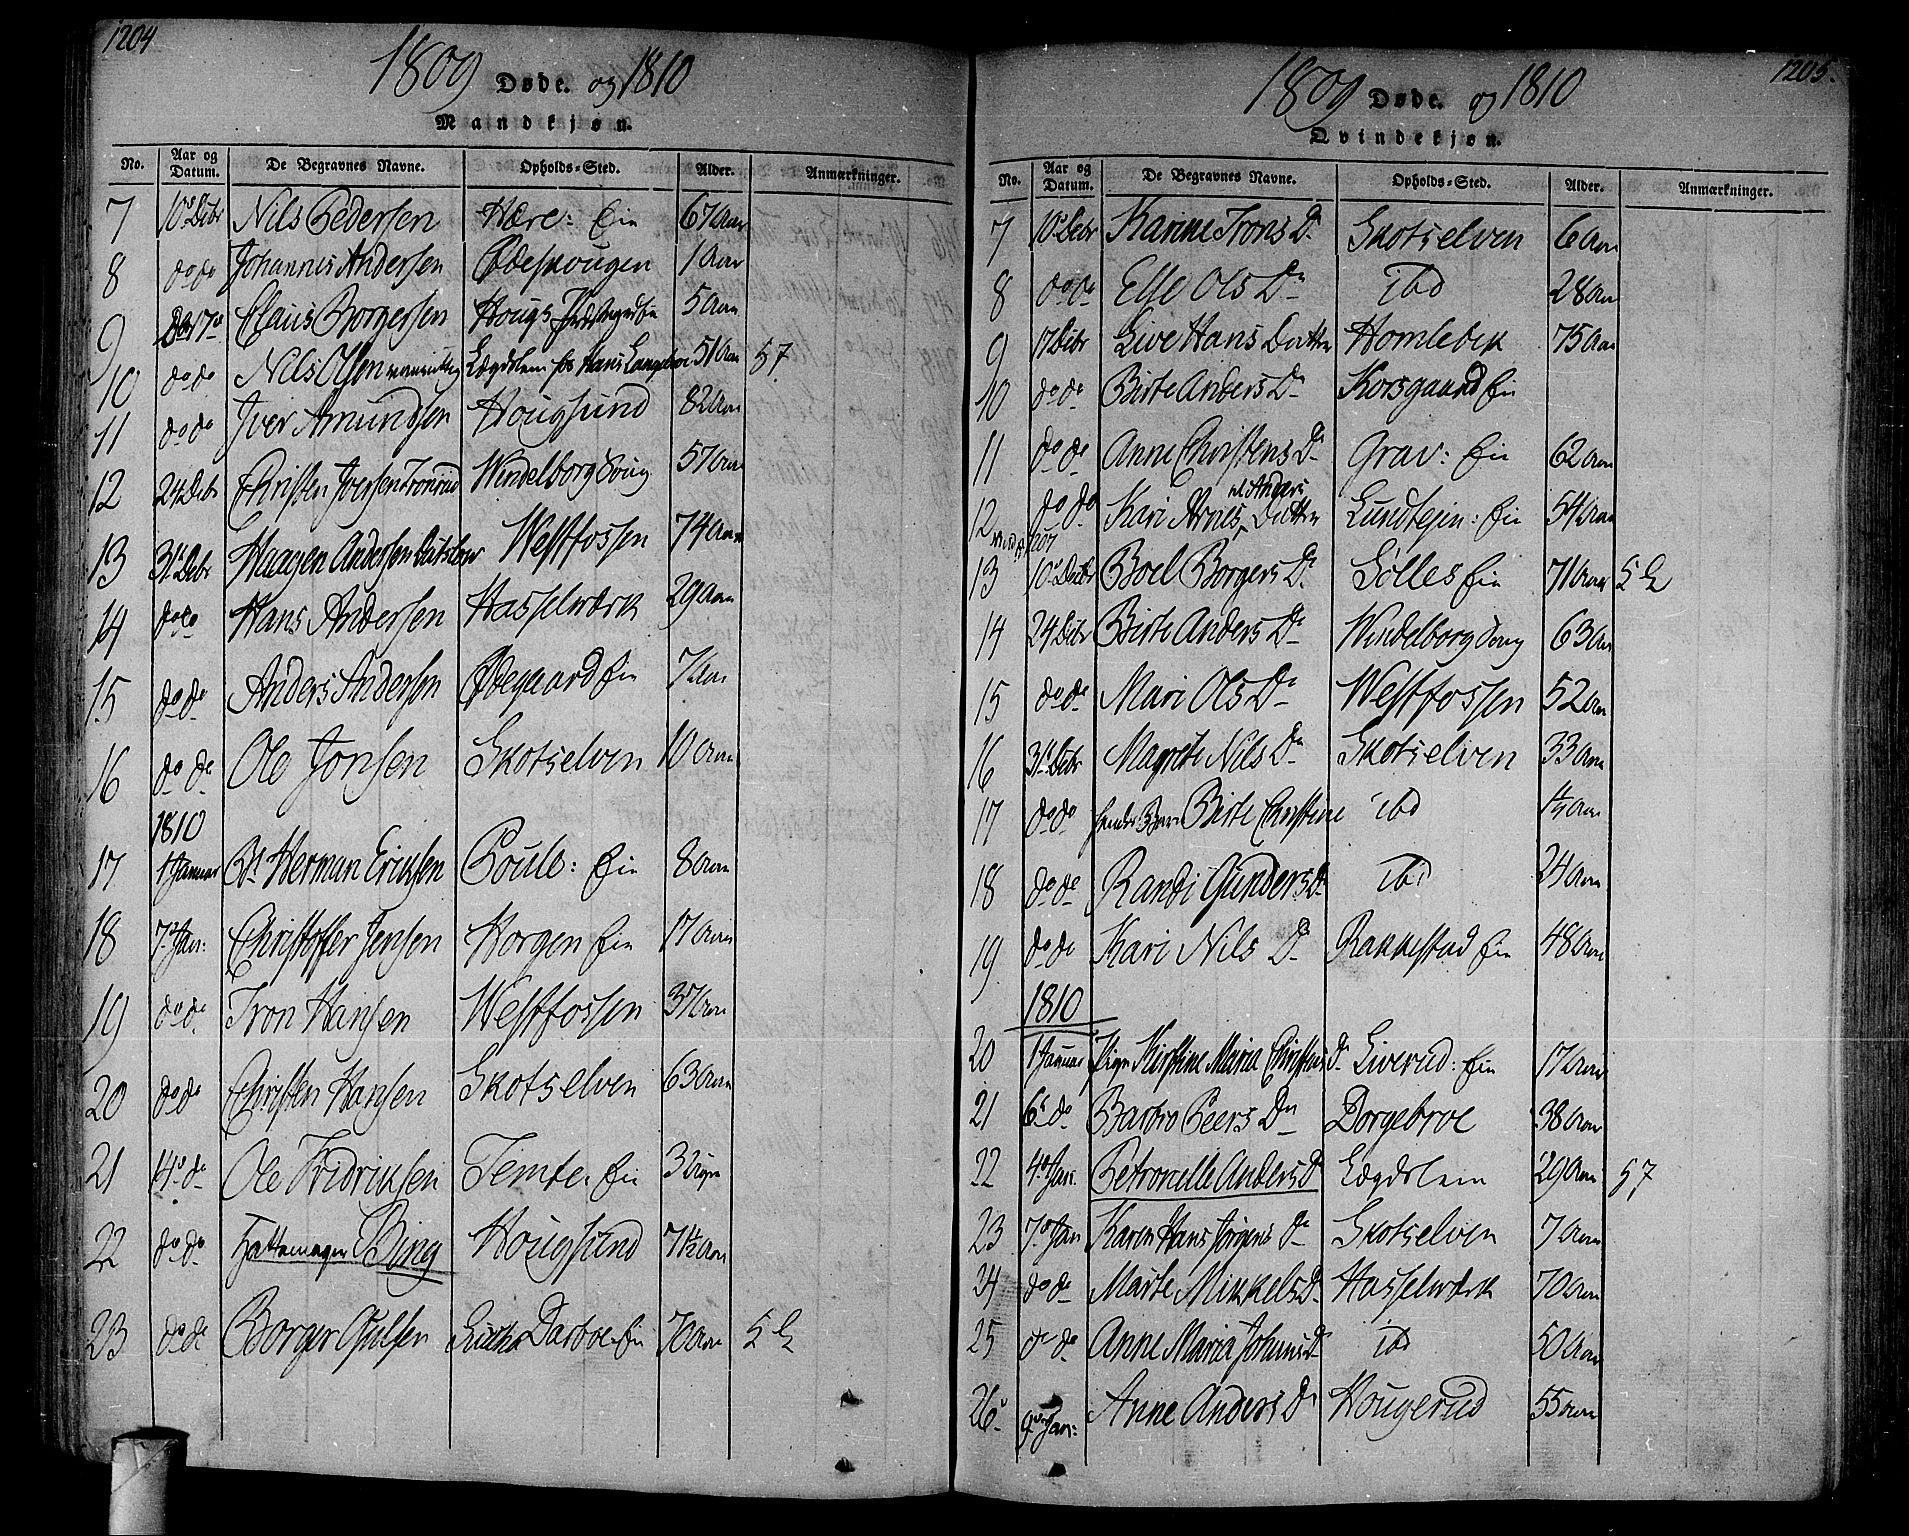 1204
1809 Døde. og 1810
Mandkjøn.
No. Aar og Datum. De Begravnes Navne. Opholds=Sted. Alder. Anmærkninger.
7 10 Debr Nils Pedersen Hære: Eie 67 Aar
8 do do Johannis Andersen Ødeskougen 1 Aar
9 17 Claus Borgersen Hougs 5 Aar
10 do do Nils Olsen Lægdslem hos Hans 51 Aar 57
11 do do Iver Amundsen Hougsund 82 Aar
12 24 Debr Christen Iversen Windelborg 57 Aar
13 31 Debr Haagen Andersen Westfossen 74 Aar
14 do do Hans Andersen Hasselwærk 29 Aar
15 do do Anders Andersen Ødegaard Eie
16 do do Ole Jonsen Skotselven 10 Aar
1810
17 1 Januar Herman Eriksen Poule: Eie 8 Aar
18 7 Jan: Christoffer Jensen Horgen Eie 17 Aar
19 do do Tron Hansen Westfossen 37 Aar
20 do do Christen Hansen Skotselven 63 Aar
21 14 do Ole Fridriksen Temte Eie 3 Uger
22 do do Hattemager Bing Hougsund 71½ Aar
23 do do Borger Darboe Eie 70 Aar
1205.
1809 Døde. og 1810
Qvindekjøn.
No. Aar og Datum. De Begravnes Navne. Opholds=Sted. Alder. Anmærkninger.
7 10 Debr Karine Trons D. Skotselven 6 Aar
8 do do Else Ols Dr ibd 28 Aar
9 17 Debr Live Hans Datter Homlebek 75 Aar
10 do do Birte Anders Dr Korsgaard Eie
11 do do Anne Christens Dr Grav: Eie 62 Aar
12 do do Kari Arnes Datter Lundtejen: Eie 54 Aar
13 10 Debr Boel Borgers Dr Sølles Eie 71 Aar
14 24 Debr Birte Anders Dr Windelborg 63 Aar
15 do do Mari Ols Dr Westfossen 52 Aar
16 31 Debr Magrete Nils Dr Skotselven 33 Aar
17 do do Birte Christine ibd
18 do do Randi Gunders Dr ibd 24 Aar
19 do do Kari Nils Dr Rakkestad Eie 48 Aar
1810
20 1 Januar Pigen Kirstine Maria Christens Dr Liverud: Eie 17 Aar
21 6 do Barbro Peers Dr Dorgebroe 38 Aar
22 4 Jan. Petronelle Anders D Lægdslem 29 Aar 57
23 7 Jan Karen Hans Jørgens Dr Skotselven 7 Aar
24 do do Marte Mikkels Dr Hasselwærk 70 Aar
25 do do Anne Maria Johannes Dr ibd 50 Aar
26 9 Jan: Anne Anders Dr Hougerud 55 Aar